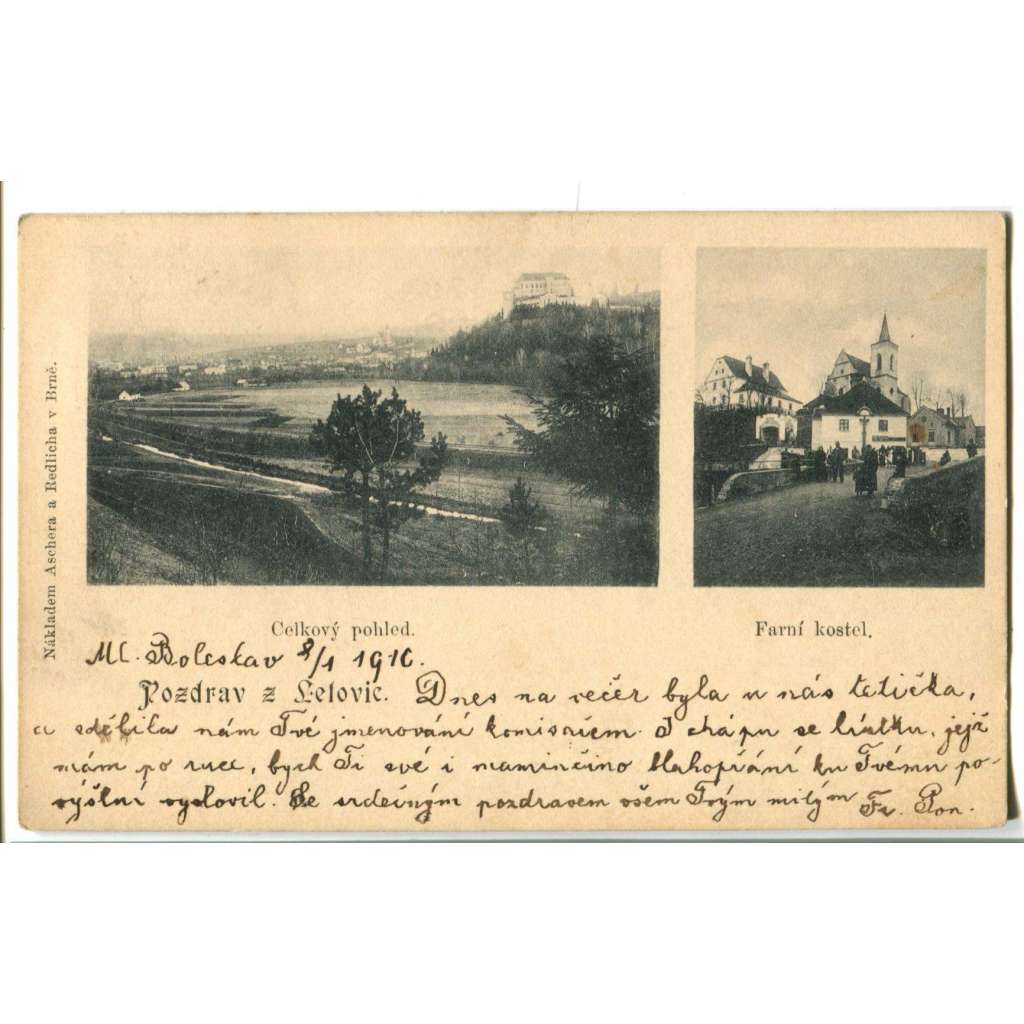 Nákladem Aschera a Redlicha v Brně.
Celkový pohled.
Farní kostel.
Ml. Boleslav 8/1 1910.
Pozdrav z Letovic. Dnes na večer byla u nás tetička,
a sdělila nám Tvé jmenování komisařem. I chápu se lístku, jejž
mám po ruce, bych Ti své i maminčino blahopřání ku Tvému po-
výšení vyslovil. Se srdečným pozdravem všem Tvým milým Fr. Pon.